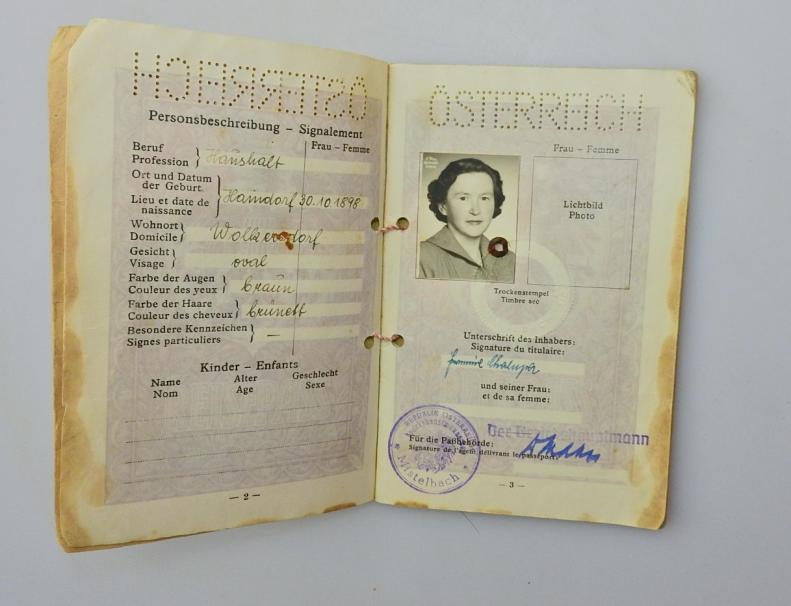 ÖSTERREICH
Personsbeschreibung – Signalement
Frau – Femme
Beruf
Profession } Haushalt
Ort und Datum
der Geburt.
Lieu et date de
naissance } Haindorf 30.10.1898
Wohnort
Domicile } Wolkersdorf
Gesicht
Visage } oval
Farbe der Augen
Couleur des yeux } braun
Farbe der Haare
Couleur des cheveux } brünett
Besondere Kennzeichen
Signes particuliers } —
Kinder – Enfants
Name Alter Geschlecht
Nom Age Sexe
— 2 —
ÖSTERREICH
Frau – Femme
Lichtbild
Photo
Trockenstempel
Timbre sec
Unterschrift des Inhabers:
Signature du titulaire:
und seiner Frau:
et de sa femme:
Der Bezirkshauptmann
Für die Paßbehörde:
Signature de l'agent délivrant le passeport:
REPUBLIK ÖSTERREICH
Mistelbach
— 3 —